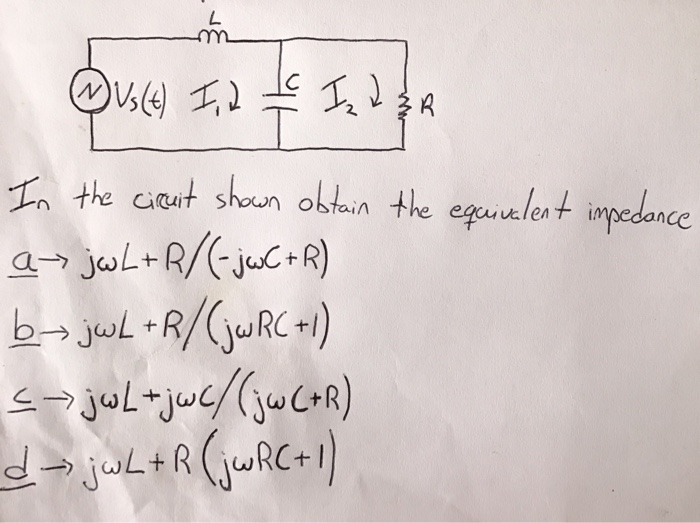 L
Vs(t) I₁ C I₂ R
In the ciruit shown obtain the equivalent impedance
a→ jωL+R/(-jωC+R)
b→ jωL+R/(jωRC+1)
c→ jωL+jωC/(jωC+R)
d→ jωL+R(jωRC+1)